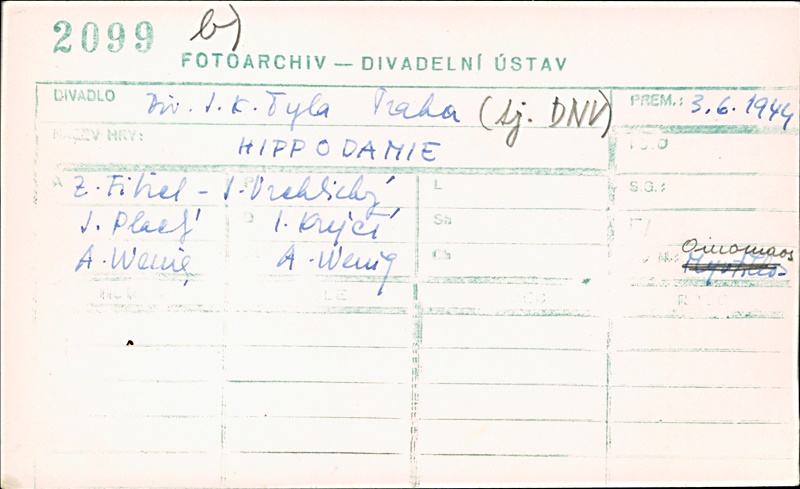 2099 b)
FOTOARCHIV — DIVADELNÍ ÚSTAV
DIVADLO Div. J. K. Tyla Praha (tj. DNV) PREM.: 3. 6. 1944
NÁZEV HRY: HIPPODAMIE
A Z. Fibich - J. Vrchlický L S.G.:
J. Plachý I. Krejčí Sb
A. Wenig A. Wenig Ch Oinomaos